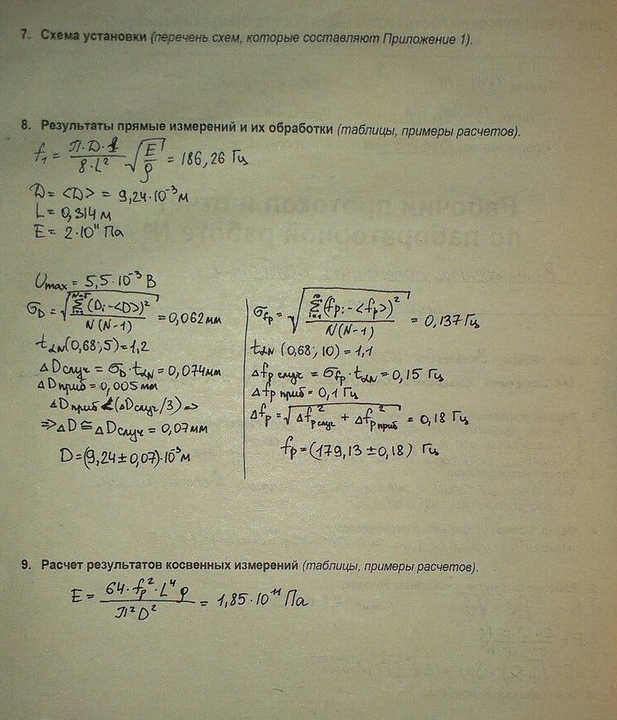 7. Схема установки (перечень схем, которые составляют Приложение 1).
8. Результаты прямые измерений и их обработки (таблицы, примеры расчетов).
f₁ = П·D·1/8·L² √E/ρ = 186,26 Гц
D = <D> = 9,24·10⁻³ м
L = 0,314 м
E = 2·10¹¹ Па
Umax = 5,5·10⁻³ В
σD = √Σ(Di-<D>)²/N(N-1) = 0,062 мм
tαN(0,68; 5) = 1,2
ΔDслуч = σD·tαN = 0,074 мм
ΔDприб = 0,005 мм
ΔDприб < (ΔDслуч/3) =>
=> ΔD ≅ ΔDслуч = 0,07 мм
D = (9,24 ± 0,07)·10⁻³ м
σfp = √Σ(fpi-<fp>)²/N(N-1) = 0,137 Гц
tαN (0,68; 10) = 1,1
Δfp случ = σfp·tαN = 0,15 Гц
Δfp приб = 0,1 Гц
Δfp = √Δfp случ² + Δfp приб² = 0,18 Гц
fp = (179,13 ± 0,18) Гц
9. Расчет результатов косвенных измерений (таблицы, примеры расчетов).
E = 64·fp²·L⁴ρ/П²D² = 1,85·10¹¹ Па